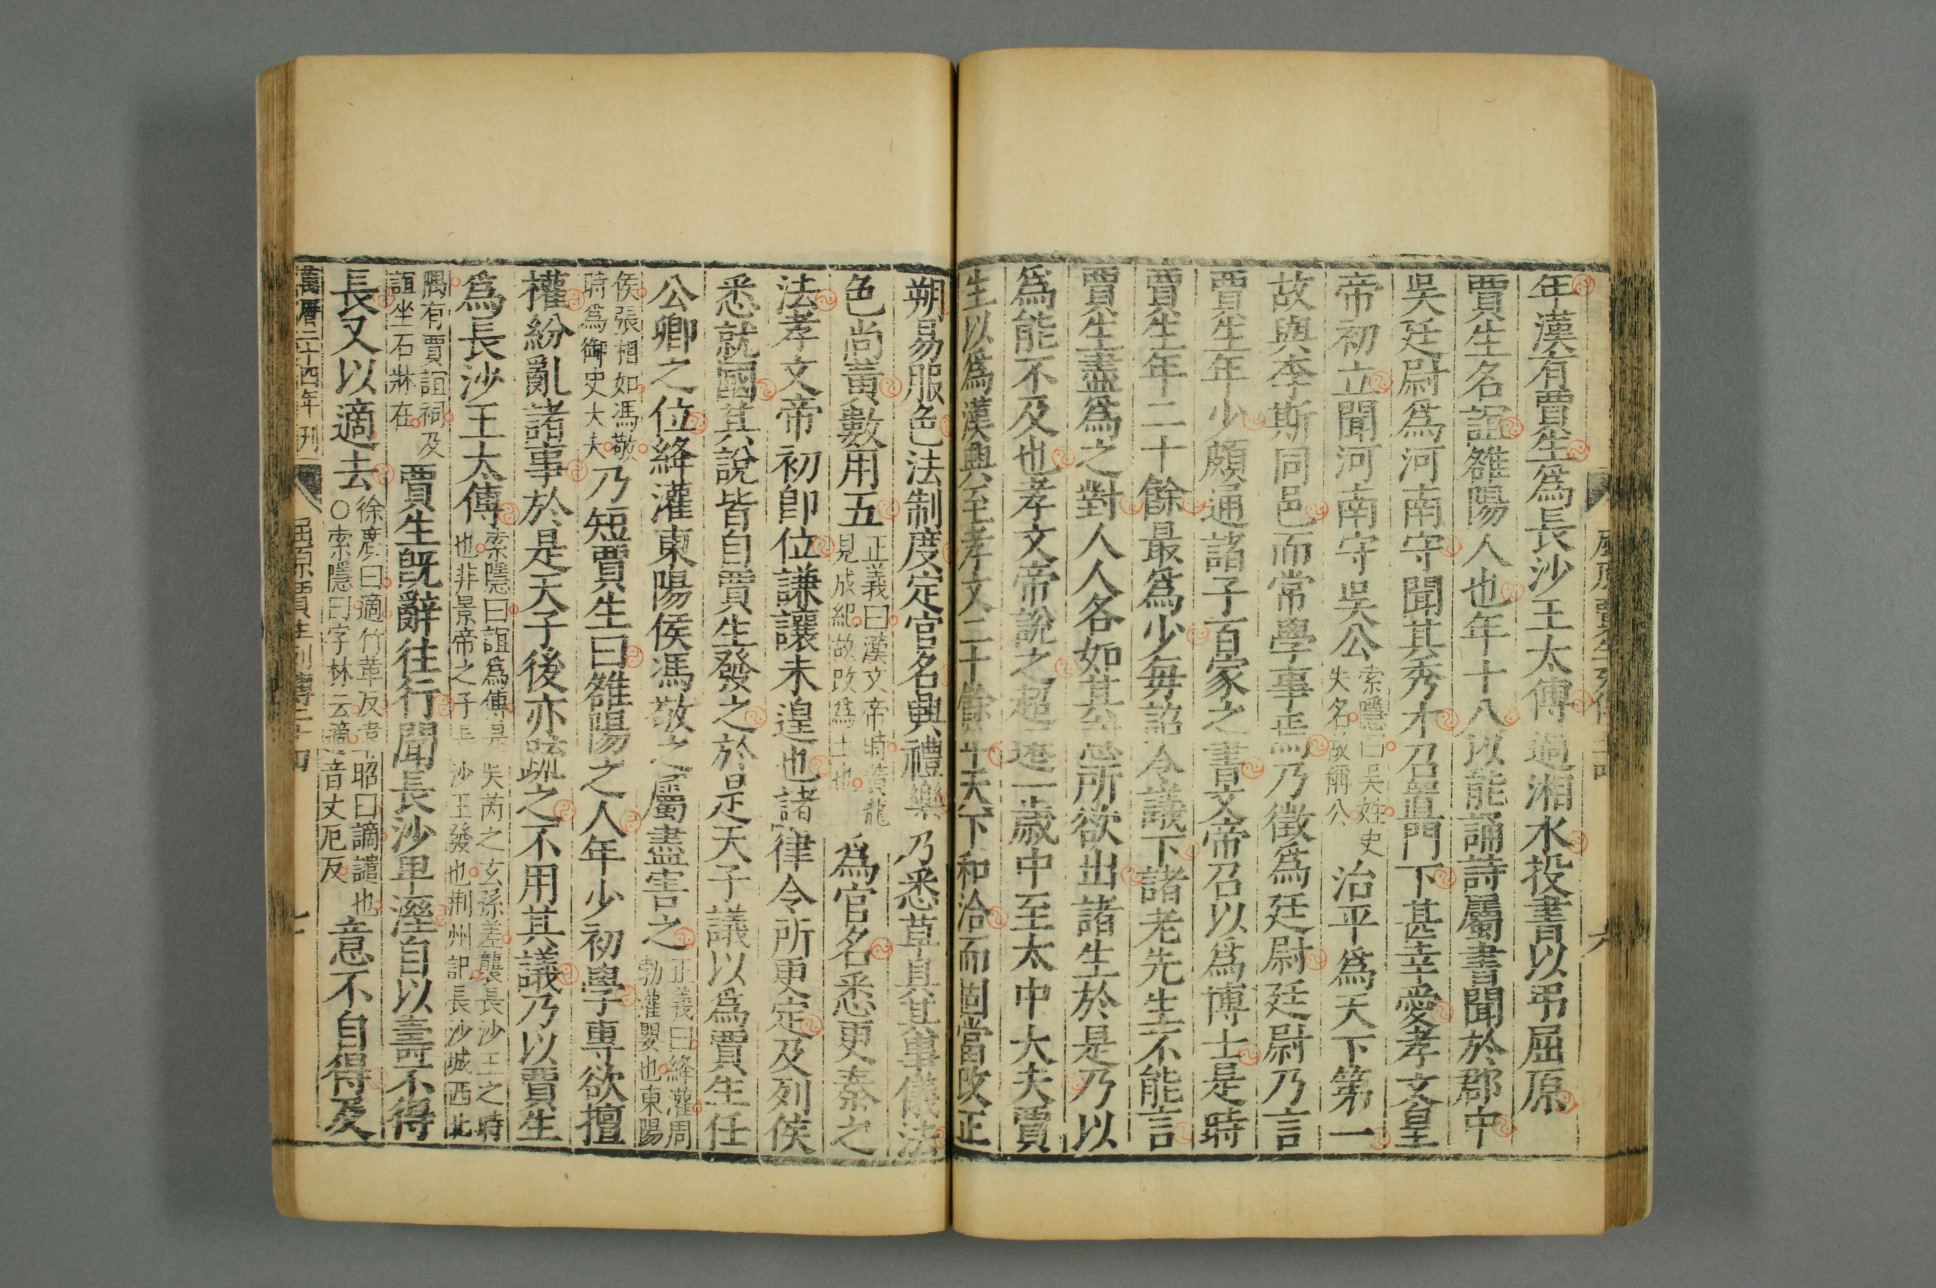 年漢有賈生爲長沙王太傅過湘水投書以弔屈原
賈生名誼雒陽人也年十八以能誦詩屬書聞於郡中
吳廷尉爲河南守聞其秀才召置門下甚幸愛孝文皇
帝初立聞河南守吳公
索隱曰吳姓史
失名故稱公
治平爲天下第一
故與李斯同邑而常學事焉乃徵爲廷尉廷尉乃言
賈生年少頗通諸子百家之書文帝召以爲博士是時
賈生年二十餘最爲少每詔令議下諸老先生不能言
賈生盡爲之對人人各如其意所欲出諸生於是乃以
爲能不及也孝文帝說之超遷一歲中至太中大夫賈
生以爲漢興至孝文二十餘年天下和洽而固當改正
朔易服色法制度定官名興禮樂乃悉草具其事儀法
色尚黃數用五
正義曰漢文帝時黃龍
見成紀故改爲土也
爲官名悉更秦之
法孝文帝初即位謙讓未遑也諸律令所更定及列侯
悉就國其說皆自賈生發之於是天子議以爲賈生任
公卿之位絳灌東陽侯馮敬之屬盡害之
正義曰絳灌周
勃灌嬰也東陽
侯張相如馮敬
時爲御史大夫
乃短賈生曰雒陽之人年少初學專欲擅
權紛亂諸事於是天子後亦疏之不用其議乃以賈生
爲長沙王太傅
索隱曰誼爲傅是吳芮之玄孫差襲長沙王之時
也非景帝之子長沙王發也荆州記長沙城西北
隅有賈誼祠及
誼坐石牀在
賈生既辭往行聞長沙卑溼自以壽不得
長又以適去
徐廣曰適竹革反韋昭曰謫譴也
○索隱曰字林云適音丈厄反
意不自得及
萬曆二十四年刊
屈原賈生列傳二十四
七